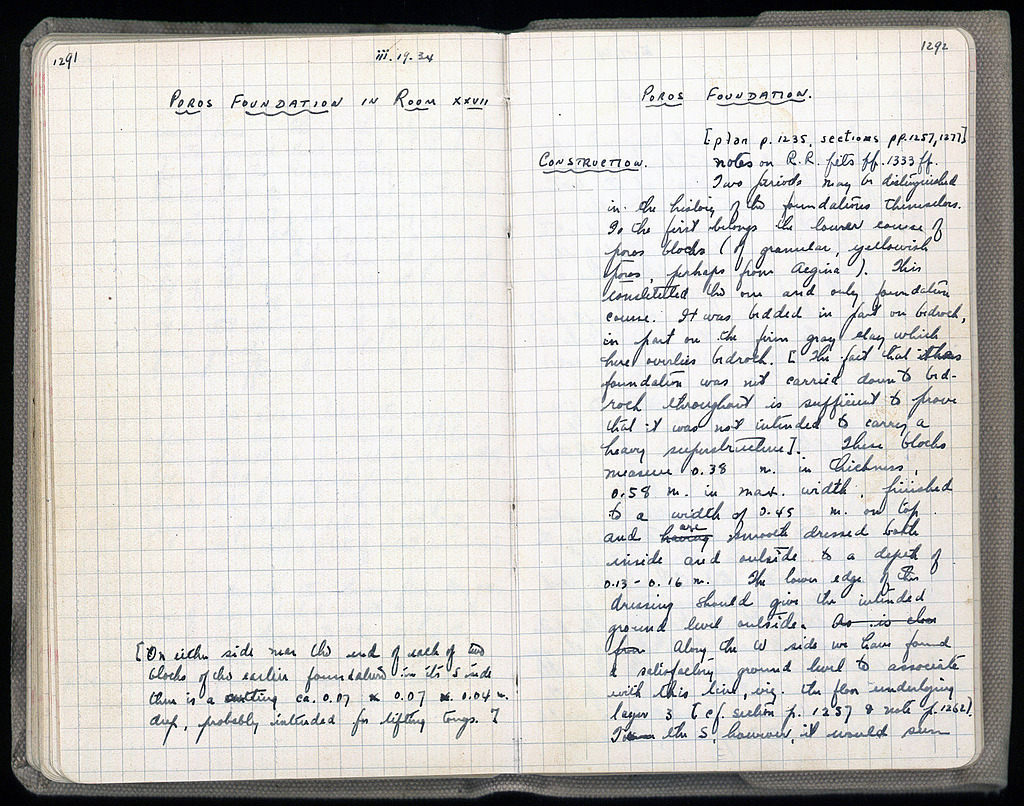 1291
iii.19.34
POROS FOUNDATION IN ROOM XXVII
[On either side near the end of each of two
blocks of the earlier foundation in its S side
there is a cutting ca. 0.07 x 0.07 x 0.04 m.
deep, probably intended for lifting tongs. ]
1292
POROS FOUNDATION.
[plan p. 1235, sections pp. 1257, 1277]
CONSTRUCTION. notes on R.R. pits pp. 1333 ff.
Two periods may be distinguished
in the history of the foundations themselves.
To the first belongs the lower course of
poros blocks (of granular, yellowish
poros, perhaps from Aegina). This
constituted the one and only foundation
course. It was bedded in part on bedrock,
in part on the firm gray clay which
here overlies bedrock. [The fact that the
foundation was not carried down to bed-
rock throughout is sufficient to prove
that it was not intended to carry a
heavy superstructure]. These blocks
measure 0.38 m. in thickness,
0.58 m. in max. width, finished
to a width of 0.45 m. on top
and having are smooth dressed both
inside and outside to a depth of
0.13 - 0.16 m. The lower edge of this
dressing should give the intended
ground level outside. As is clear
from Along the W side we have found
a satisfactory ground level to associate
with this line, viz. the floor underlying
layer 3 [cf. section p. 1257 & note p. 1262].
To the S, however, it would seem